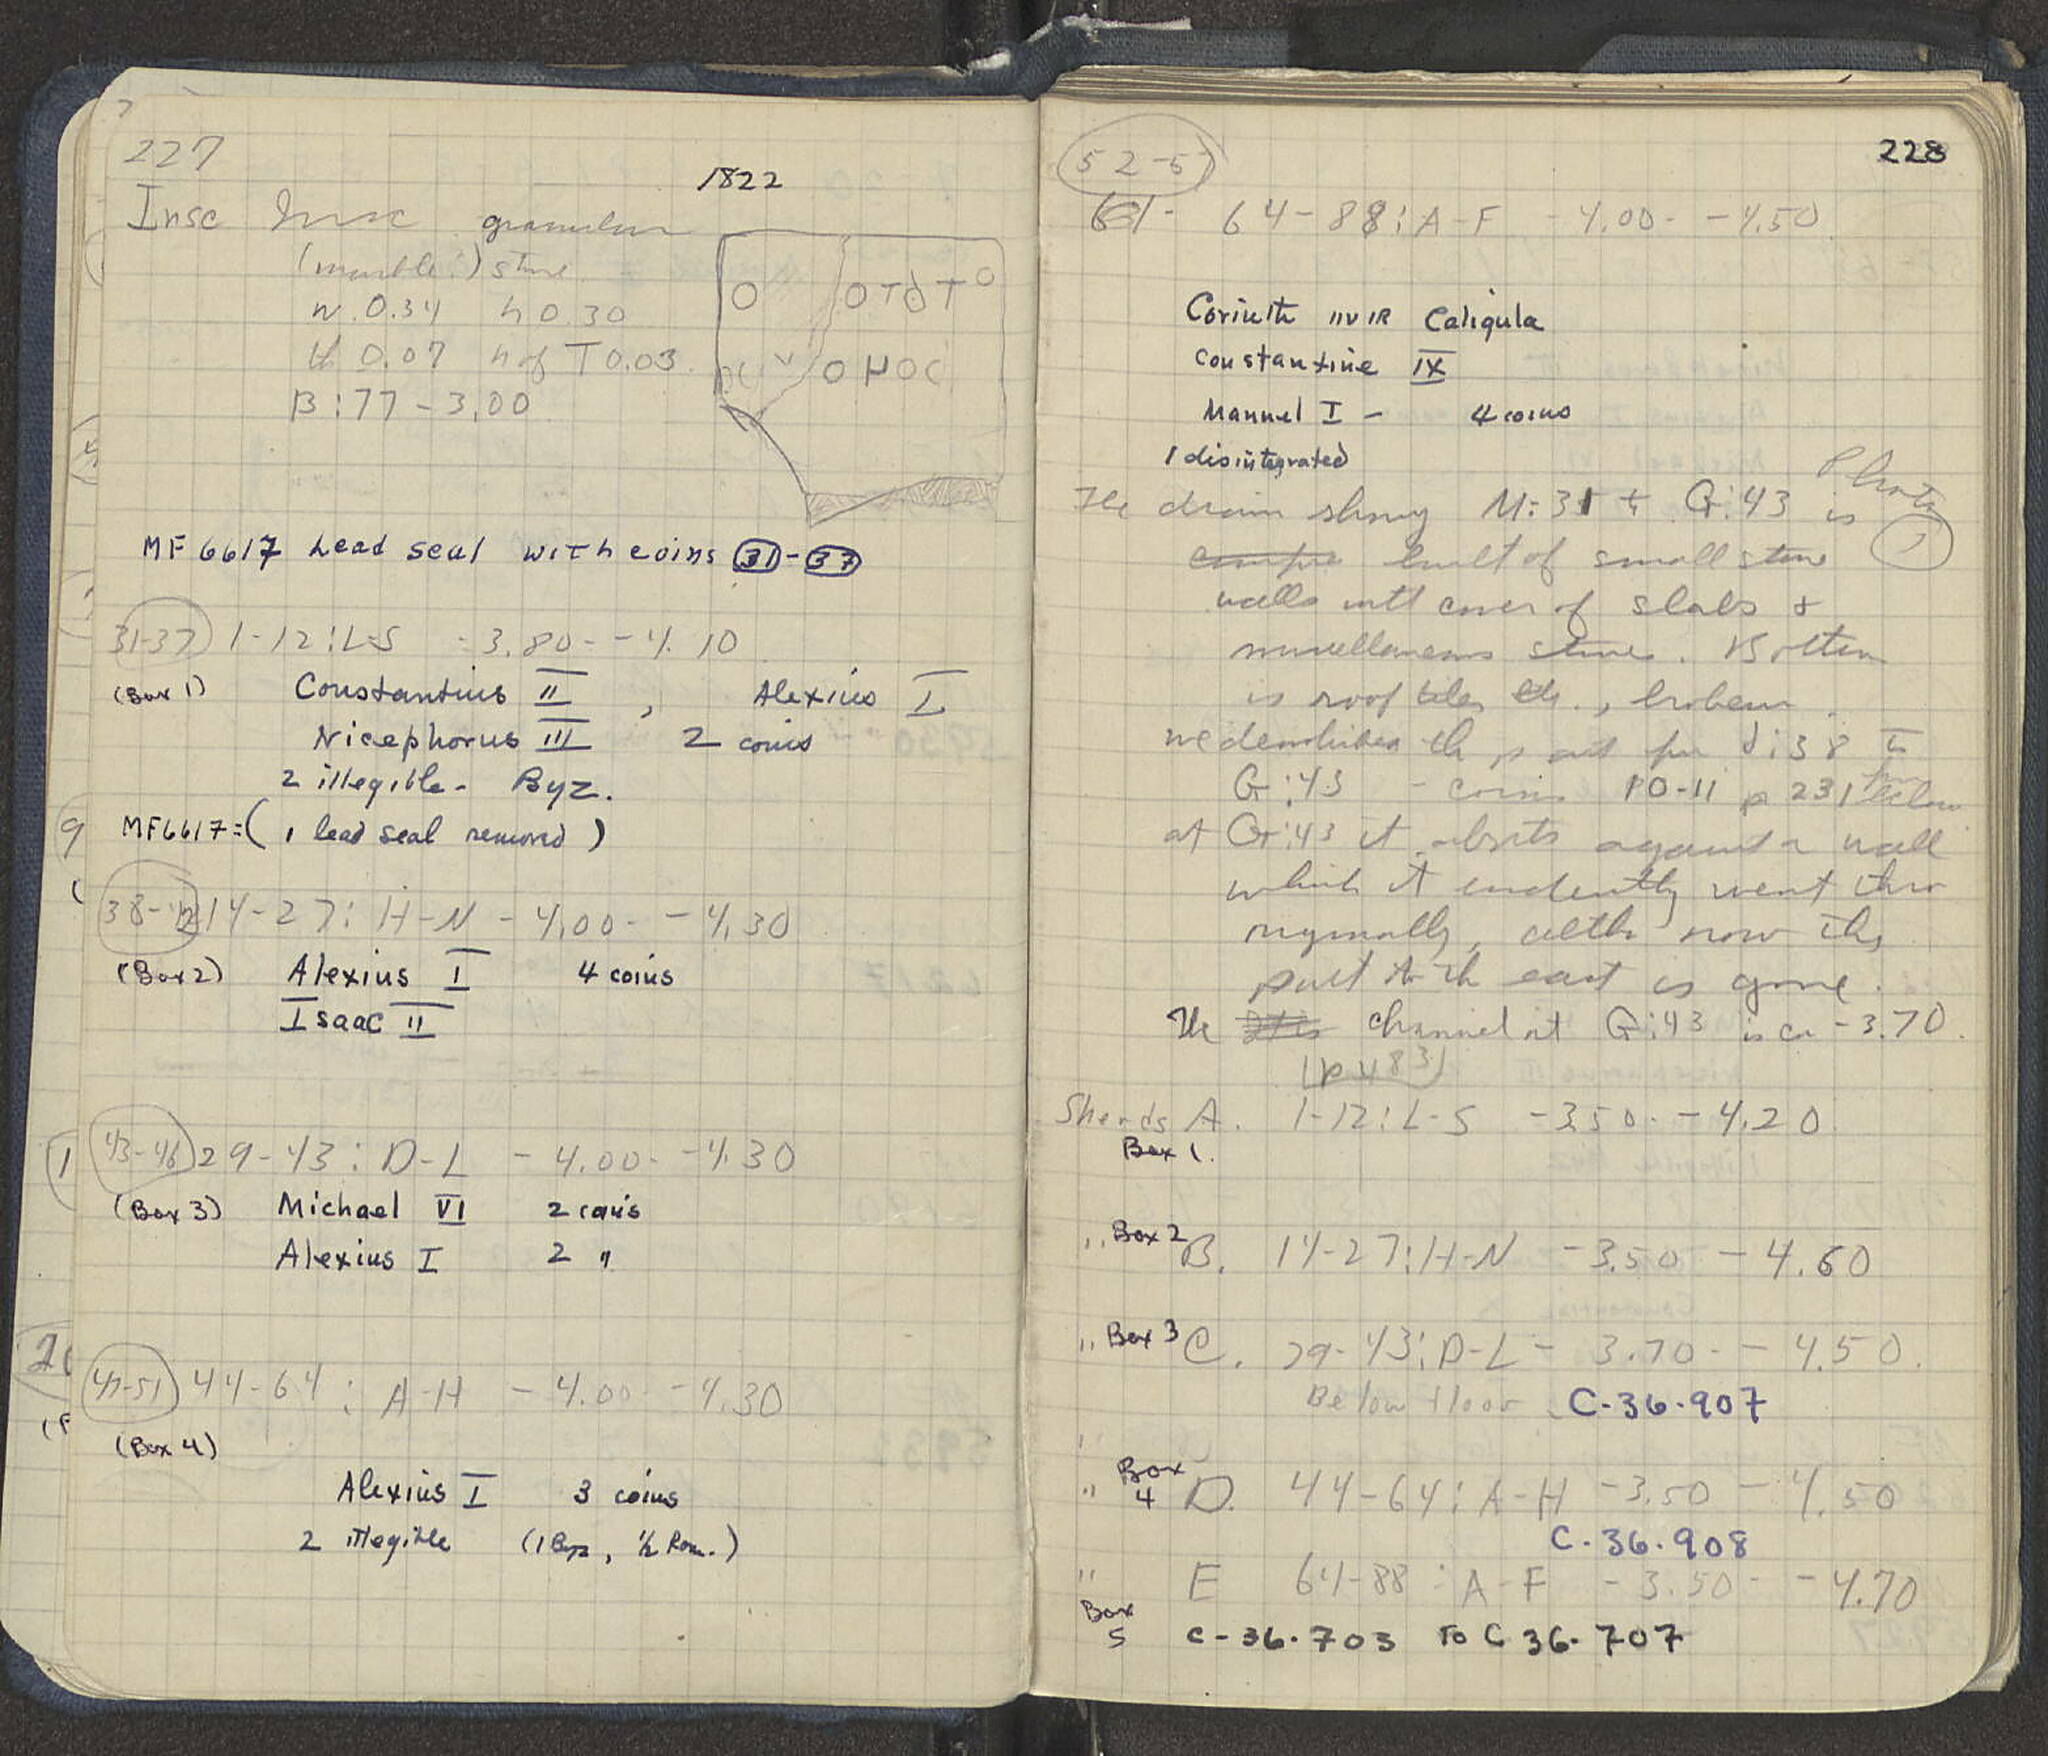 227
1822
Insc
granular
(marble?) stone
w. 0.34 h 0.30
th 0.07 h of T 0.03
B:77 -3.00
O OTOTO
OHOC
MF 6617 Lead seal with coins 31-37
31-37 1-12:L-S -3.80 - -4.10
(Box 1) Constantius II, Alexius I
Nicephorus III 2 coins
2 illegible - Byz.
MF6617=(1 lead seal removed)
38-42 14-27:H-N -4.00 - -4.30
(Box 2) Alexius I 4 coins
Isaac II
43-46 29-43:D-L -4.00 - -4.30
(Box 3) Michael VI 2 coins
Alexius I 2 "
47-51 44-64:A-H -4.00 - -4.30
(Box 4)
Alexius I 3 coins
2 illegible (1 Byz, ½ Rom.)
228
52-57
64-88:A-F -4.00 - -4.50
Corinth IIVIR Caligula
Constantine IX
Manuel I - 4 coins
1 disintegrated
Photo
The drain along M:31 + G:43 is
built of small stone
walls with cover of slabs &
miscellaneous stones. Bottom
is roof tiles etc., broken.
we demolished this part from J:38 to
G:43 - coins 10-11 p 231 below
at G:43 it abuts against a wall
which it evidently went thru
originally, altho now the
part to the east is gone.
The channel at G:43 is ca -3.70.
(p 483)
Sherds A. 1-12:L-S -3.50 - -4.20
Box 1.
" Box 2 B. 14-27:H-N -3.50 - 4.60
" Box 3 C. 29-43:D-L - 3.70 - -4.50.
Below floor C-36-907
" Box 4 D. 44-64:A-H -3.50 - 4.50
C-36-908
" E 64-88:A-F -3.50 - -4.70
Box 5 C-36-703 TO C 36-707